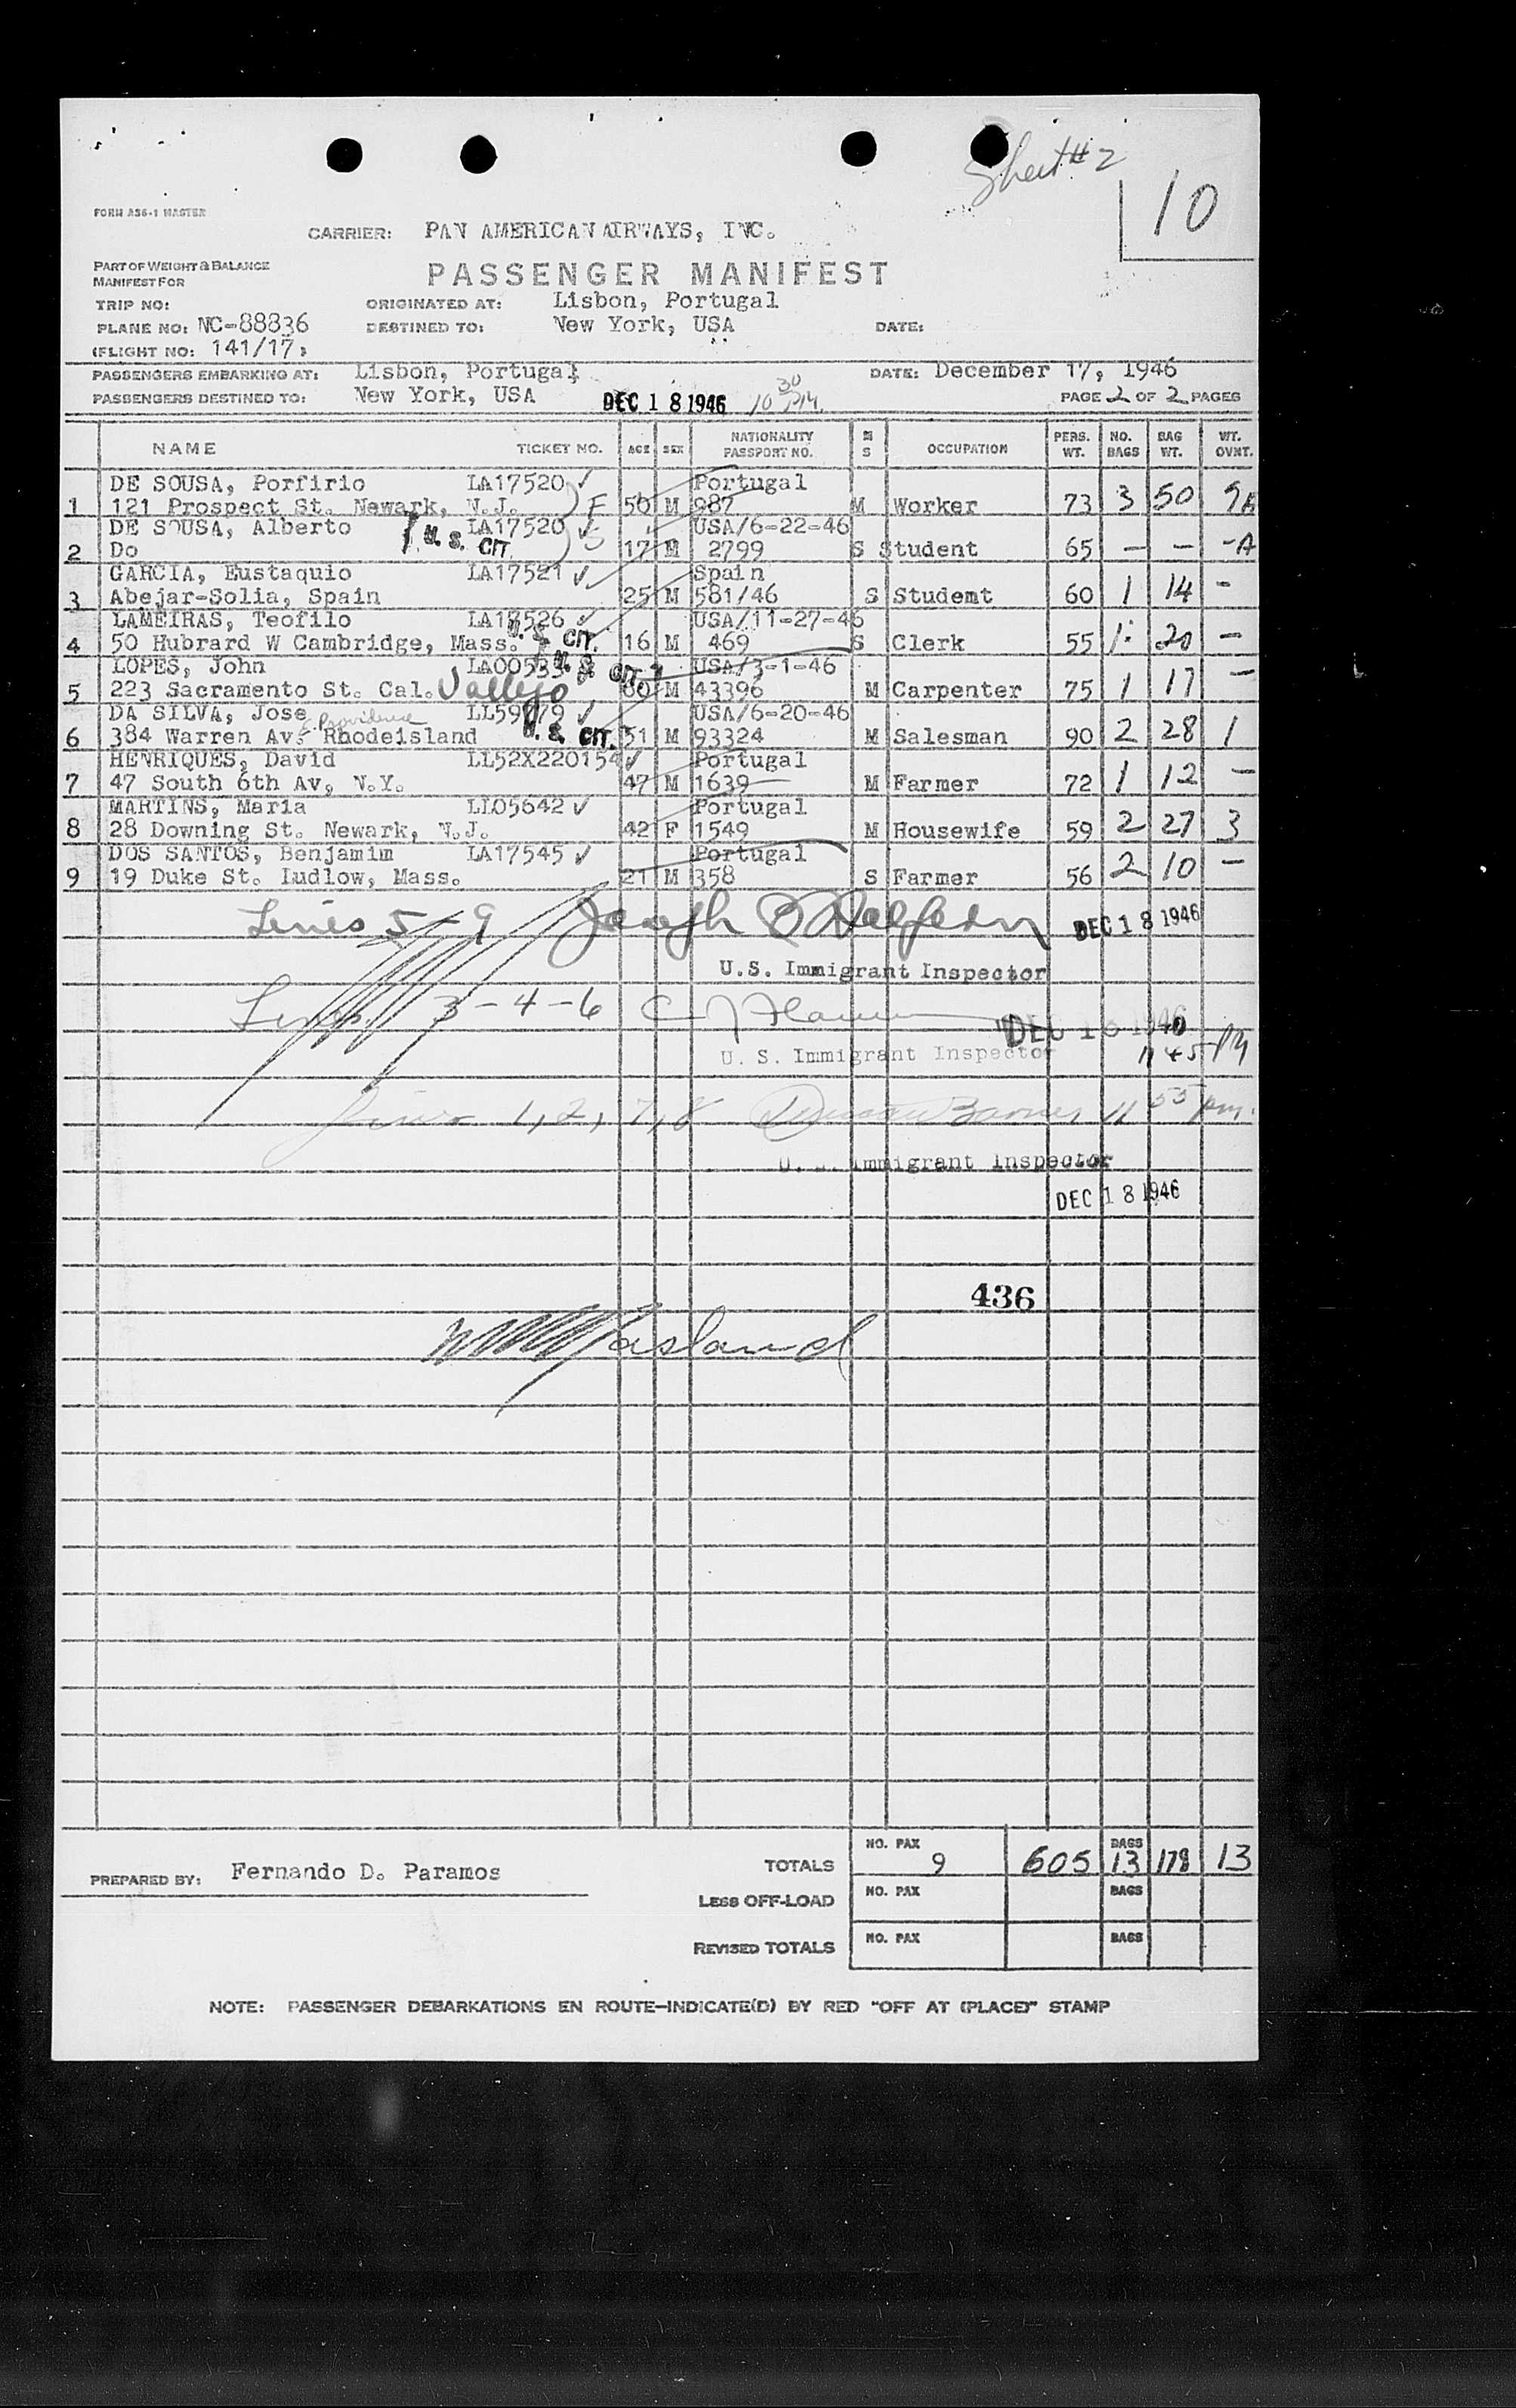 Sheet #2
10
FORM AS6-1 MASTER
CARRIER: PAN AMERICAN AIRWAYS, INC.
PART OF WEIGHT & BALANCE
MANIFEST FOR
PASSENGER MANIFEST
TRIP NO: ORIGINATED AT: Lisbon, Portugal
PLANE NO: NC-88836 DESTINED TO: New York, USA DATE:
(FLIGHT NO: 141/17)
PASSENGERS EMBARKING AT: Lisbon, Portugal DATE: December 17, 1946
PASSENGERS DESTINED TO: New York, USA DEC 18 1946 10 30 PM. PAGE 2 OF 2 PAGES
NAME TICKET NO. AGE SEX NATIONALITY PASSPORT NO. M S OCCUPATION PERS. WT. NO. BAGS BAG WT. WT. OVNT.
DE SOUSA, Porfirio LA17520 ✓ Portugal
1 121 Prospect St. Newark, N.J. F 50 M 987 M Worker 73 3 50 9A
DE SOUSA, Alberto LA17520 ✓ USA/6-22-46
2 Do U. S. CIT. S 17 M 2799 S Student 65 — — -A
GARCIA, Eustaquio LA17521 ✓ Spain
3 Abejar-Solia, Spain 25 M 581/46 S Studemt 60 1 14 -
LAMEIRAS, Teofilo LA17526 ✓ USA/11-27-46
4 50 Hubrard W Cambridge, Mass. U. S. CIT. 16 M 469 S Clerk 55 1 20 —
LOPES, John LA00533 U. S. CIT. USA/3-1-46
5 223 Sacramento St. Cal. Vallejo 60 M 43396 M Carpenter 75 1 17 —
DA SILVA, Jose E. Providence LL59079 ✓ USA/6-20-46
6 384 Warren Av. Rhodeisland U. S. CIT. 51 M 93324 M Salesman 90 2 28 1
HENRIQUES, David LL52X220154 ✓ Portugal
7 47 South 6th Av, N.Y. 47 M 1639 M Farmer 72 1 12 —
MARTINS, Maria LL05642 ✓ Portugal
8 28 Downing St. Newark, N.J. 42 F 1549 M Housewife 59 2 27 3
DOS SANTOS, Benjamim LA17545 ✓ Portugal
9 19 Duke St. Ludlow, Mass. 21 M 358 S Farmer 56 2 10 —
Lines 5-9 Joseph DEC 18 1946
U.S. Immigrant Inspector
3-4-6 DEC 18 1946
U. S. Immigrant Inspector 11 45 PM
Lines 1, 2, 7, 8 11 55 pm.
U. S. Immigrant Inspector
DEC 18 1946
436
PREPARED BY: Fernando D. Paramos
TOTALS NO. PAX 9 605 BAGS 13 178 13
LESS OFF-LOAD NO. PAX BAGS
REVISED TOTALS NO. PAX BAGS
NOTE: PASSENGER DEBARKATIONS EN ROUTE—INDICATE(D) BY RED "OFF AT (PLACE)" STAMP